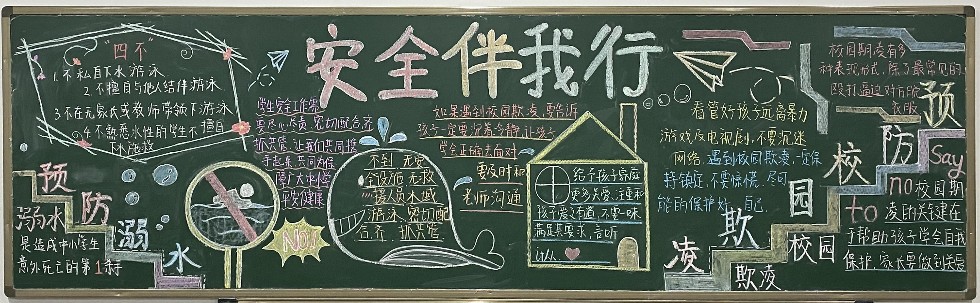 安全伴我行
"四不"
1.不私自下水游泳
2.不擅自与他人结伴游泳
3.不在无家长或教师带领下游泳
4.不熟悉水性的学生不擅自
下水施救
预防溺水
溺水
是造成中小学生
意外死亡的第1杀手
学生安全工作需
要尽心尽责,密切配合,齐
抓共管,让我们共同携
手起来,共同为保
障广大中小学
No!
不到无安
全设施无救
援人员水域
游泳,密切配
合,齐抓共管
如果遇到校园欺凌,要告诉
孩子一定要沉着冷静,让孩子
学会正确去面对
要及时和
老师沟通
给予孩子家庭
更多关爱,注重和
孩子
满足其要求,言听
计从
看管好孩子远离暴力
游戏及电视剧,不要沉迷
网络,遇到校园欺凌,一定保
持镇定,不要惊慌,尽可
能的保护好自己.
校园期凌有多
种表现形式,除了最常见的
殴打
预防校园欺凌
校园
欺凌
Say
no校园期
to凌的关键在
于帮助孩子学会自我
保护,家长要做到关爱